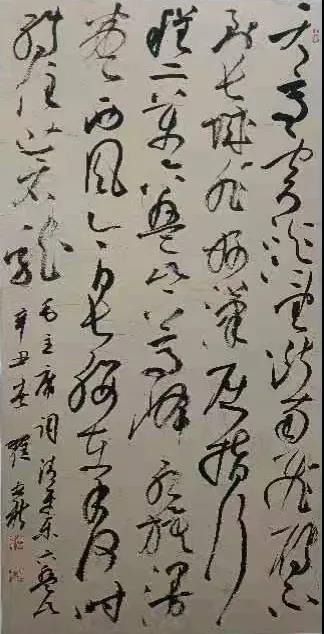 天高云淡望断南飞雁不
到长城非好汉屈指行
程二万六盘山上高峰红旗漫
卷西风今日长缨在手何时
缚住苍龙
毛主席词清平乐六盘山
辛丑春